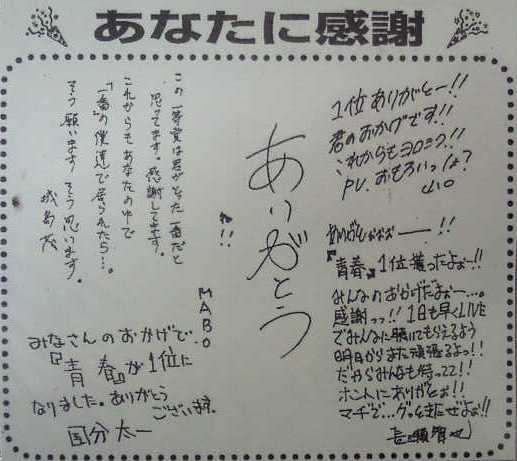 あなたに感謝
1位ありがとー!!
君のおかげです!!
これからもヨロシク!!
PV、おもろいっしょ?
山口
ありがとぉぉぉー!!
『青春』1位獲ったよぉー!!
みんなのおかげだよぉー…。
感謝っっ!!1日も早くLIVE
でみんなに聴いてもらえるよう
明日からまた頑張るよっ!!
だからみんなも待ってて!!
ホントにありがとぉ!!
マヂで…グッときたぜよぉ!!
長瀬智也
ありがとう
ね!!
MABO
この一等賞は君がとった一番だと
思ってます。感謝してます。
これからもあなたの中で
「一番」の僕達で居られたら…。
そう願います そう思います。
城島茂
みなさんのおかげで
『青春』が1位に
なりました。ありがとう
ございます。
国分太一